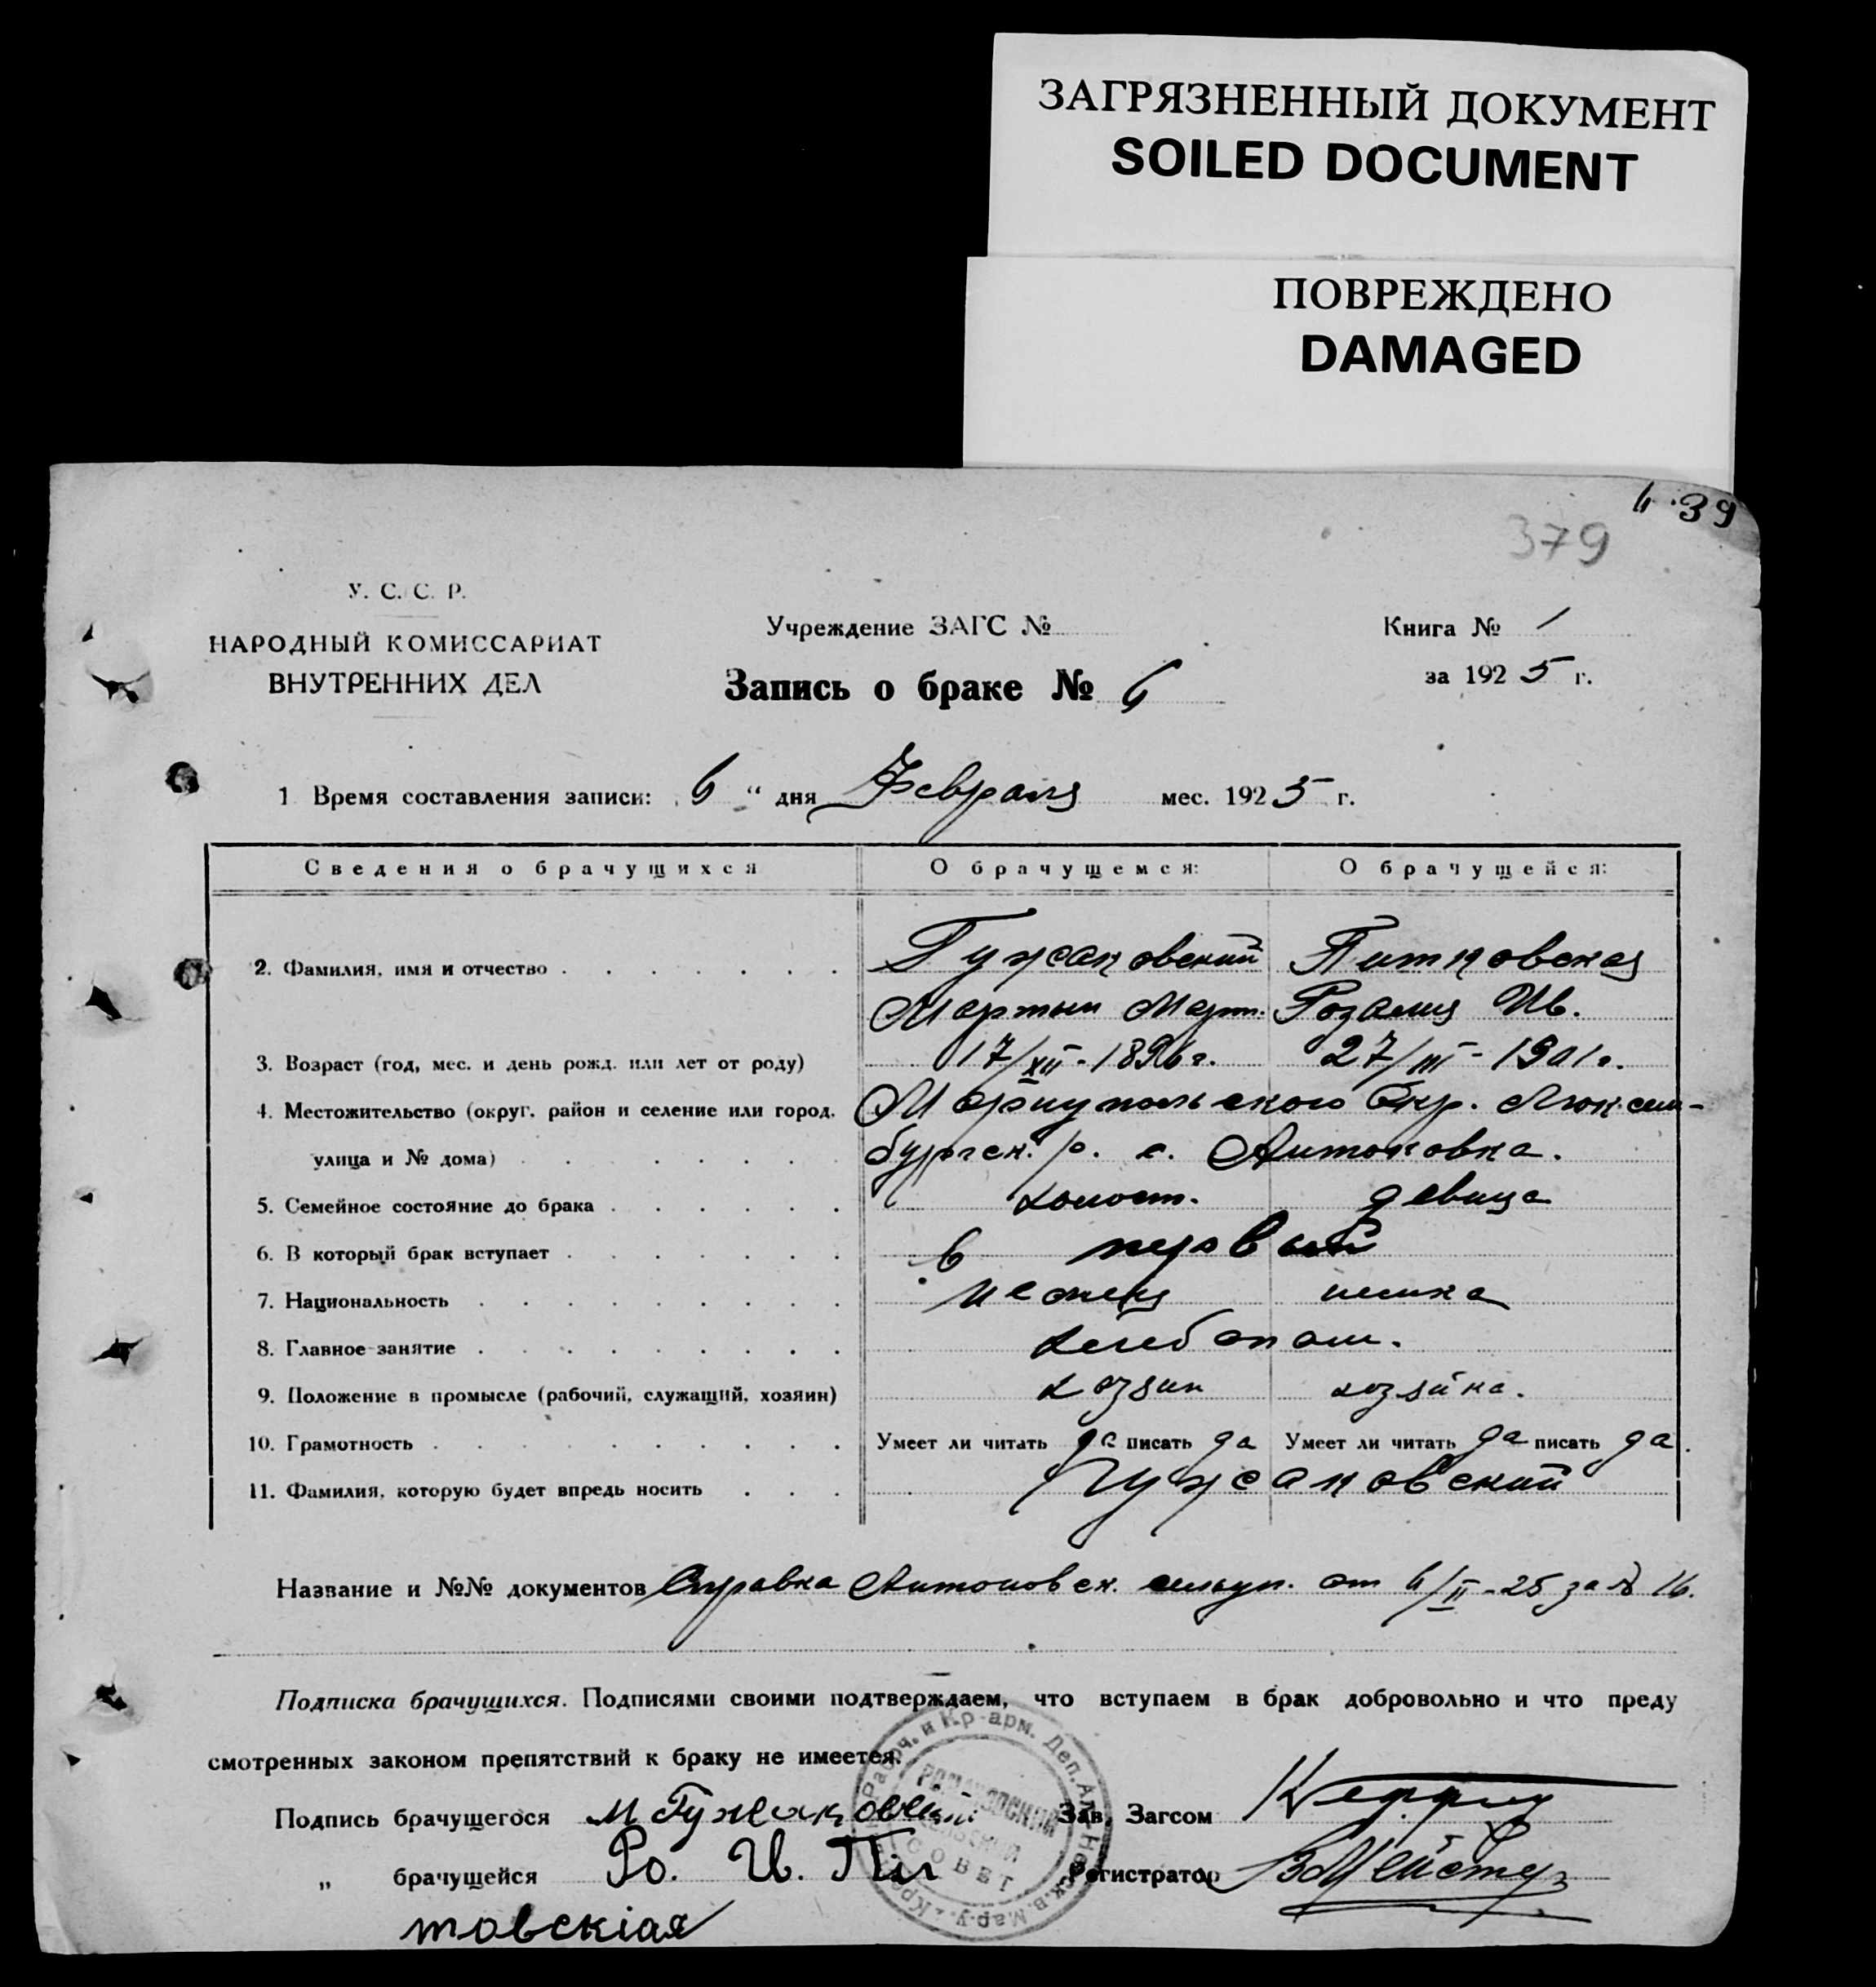 ЗАГРЯЗНЕННЫЙ ДОКУМЕНТ
SOILED DOCUMENT
ПОВРЕЖДЕНО
DAMAGED
39
379
У. С. С. Р.
НАРОДНЫЙ КОМИССАРИАТ
ВНУТРЕННИХ ДЕЛ
Учреждение ЗАГС №
Запись о браке № 6
Книга № 1
за 1925 г.
1 Время составления записи: 6 " дня Февраля мес. 1925 г.
Сведения о брачущихся О брачущемся: О брачущейся:
2. Фамилия, имя и отчество Гужаковский Питковская
Мартын Март. Розалия Ив.
3. Возраст (год, мес. и день рожд. или лет от роду) 17/XII-1896г. 27/III-1901г.
4. Местожительство (округ, район и селение или город, Мариупольского Окр. Люксем-
улица и № дома) бургск. р. с. Антоновка.
5. Семейное состояние до брака холост. девица
6. В который брак вступает в первый
7. Национальность немец немка
8. Главное занятие хлебопаш.
9. Положение в промысле (рабочий, служащий, хозяин) хозяин хозяйка.
10. Грамотность Умеет ли читать да писать да Умеет ли читать да писать да.
11. Фамилия, которую будет впредь носить Гужаковский
Название и №№ документов Справка Антоновск. от 6/II-25 за № 16.
Подписка брачущихся. Подписями своими подтверждаем, что вступаем в брак добровольно и что преду
смотренных законом препятствий к браку не имеется.
Подпись брачущегося М Гужаковский Зав. Загсом
„ брачущейся Ро. И. Пит Регистратор
товскіая
Рабоч. и Кр-арм. Деп.
СОВЕТ